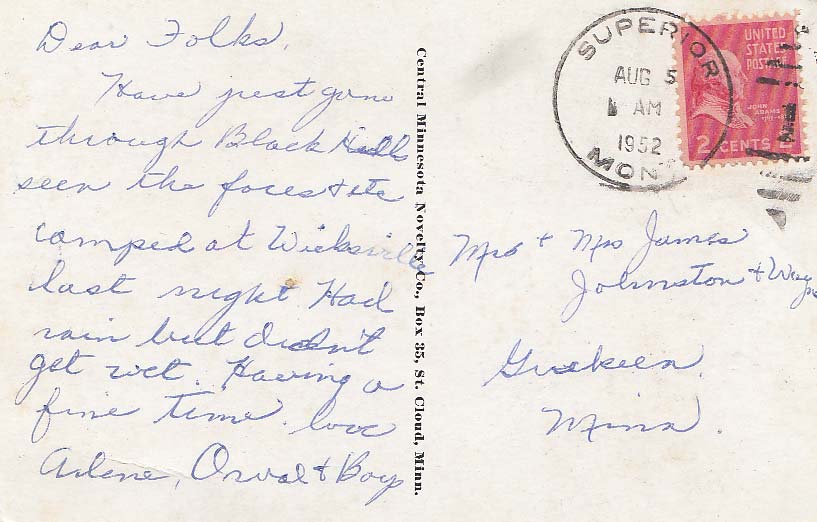 Dear Folks,
Have just gone
through Black Hills
seen the faces & etc
camped at Wicksville
last night Had
rain but didn't
get wet. Having a
fine time. love
Arlene, Orval & Boys
Central Minnesota Novelty Co., Box 35, St. Cloud, Minn.
SUPERIOR
AUG 5
AM
1952
MONT
UNITED
STATES
POSTAGE
JOHN
ADAMS
2 CENTS 2
Mrs + Mrs James
Johnston + Wayne
Guckeen,
Minn.